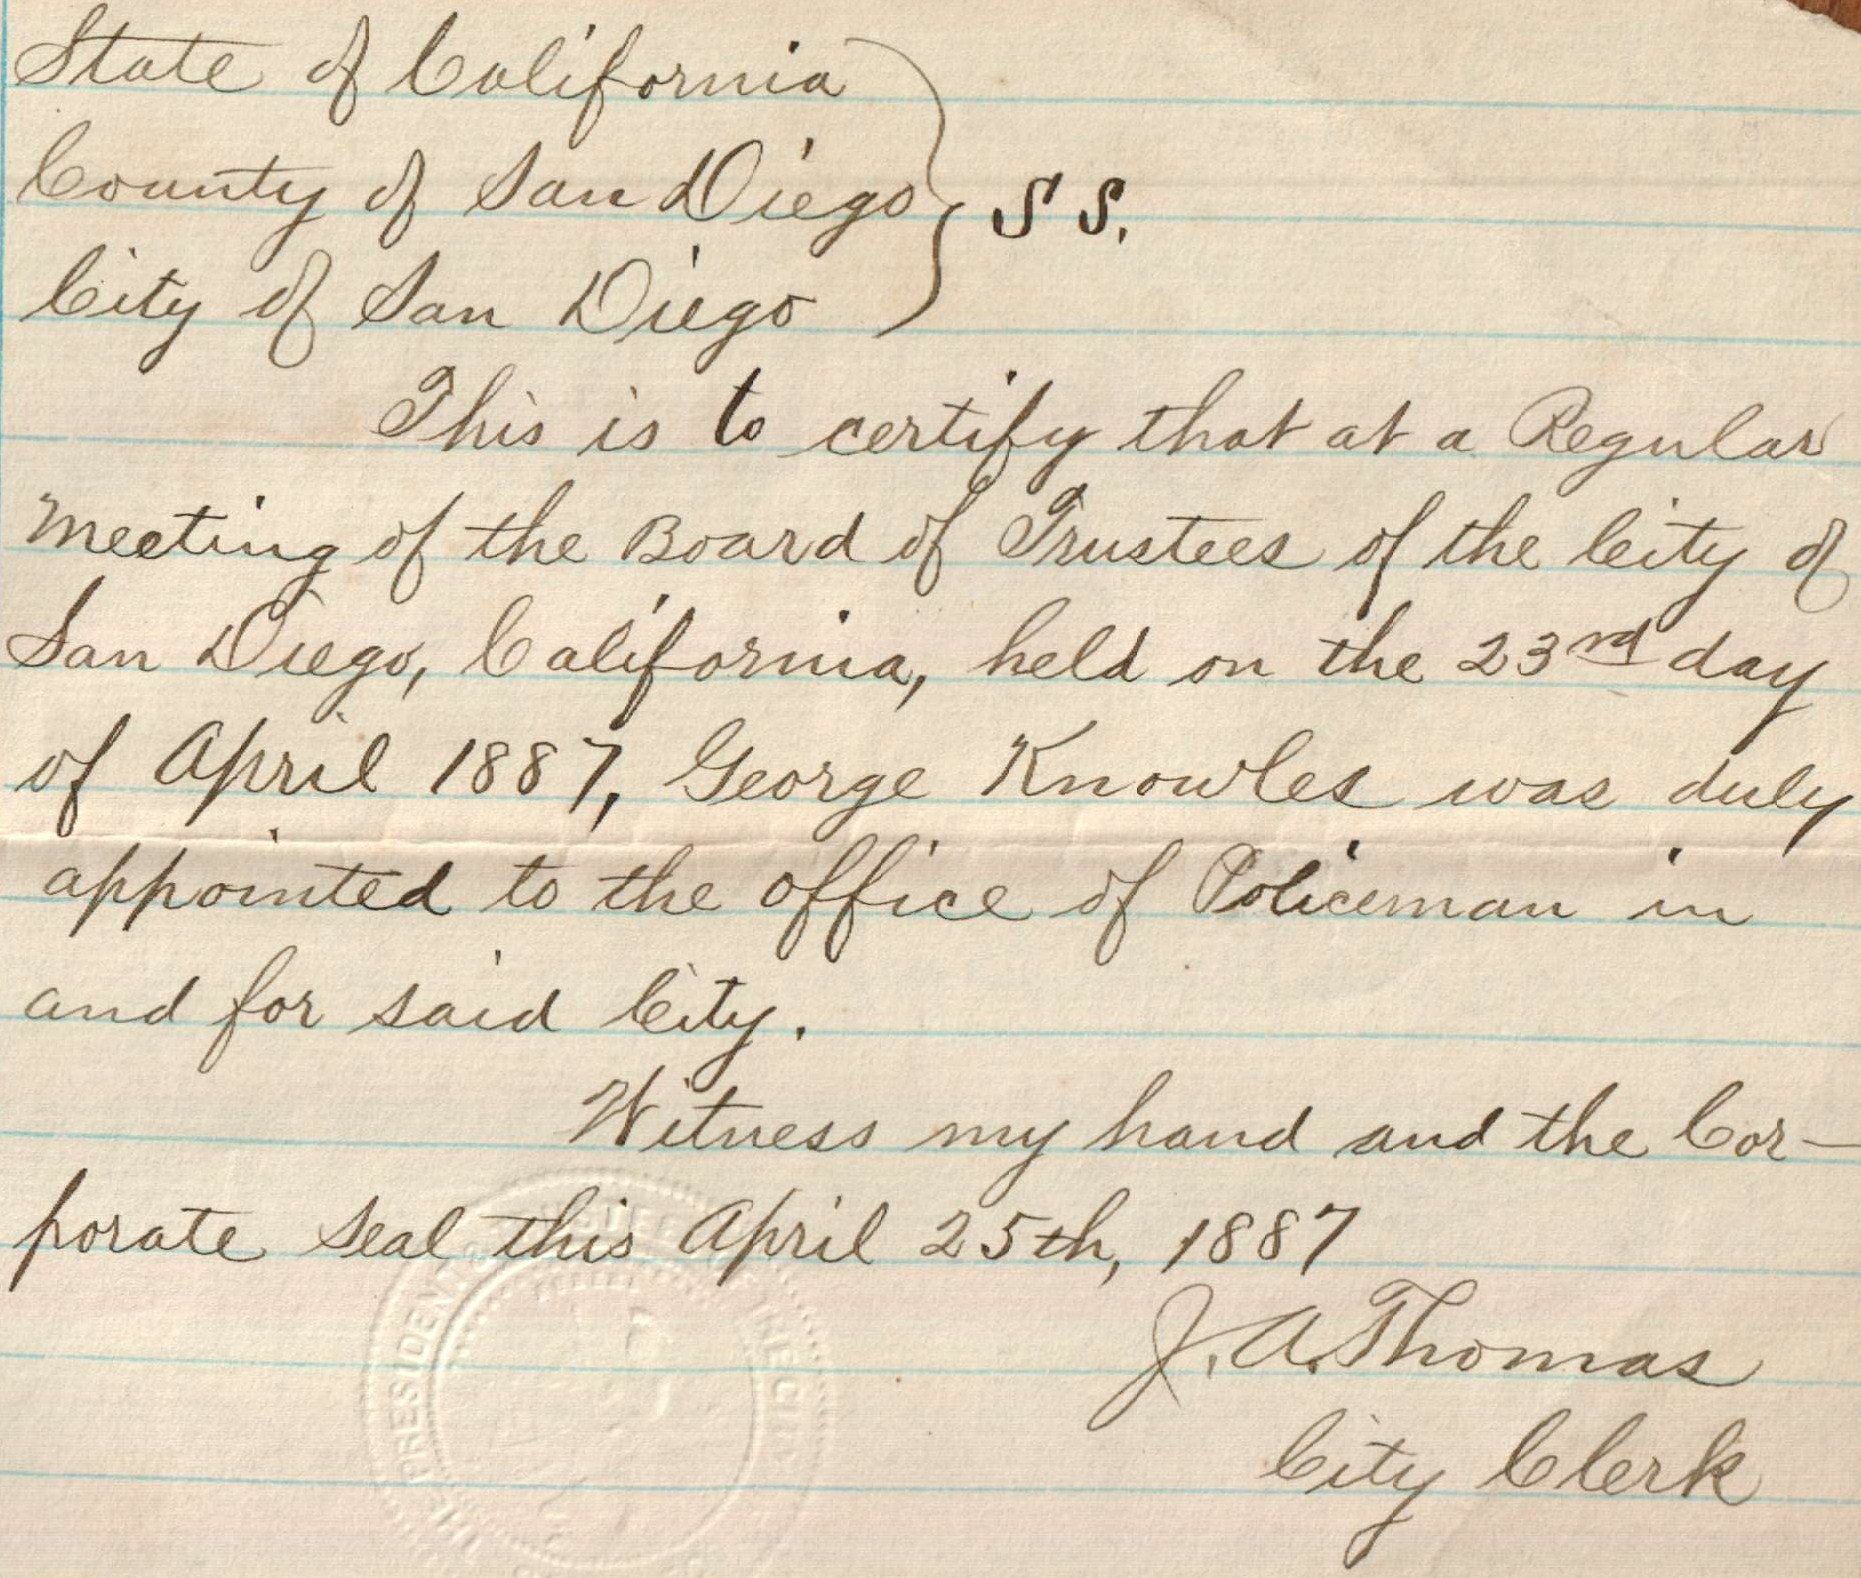 State of California
County of San Diego } SS.
City of San Diego
This is to certify that at a Regular
meeting of the Board of Trustees of the City of
San Diego, California, held on the 23rd day
of April 1887, George Knowles was duly
appointed to the office of Policeman in
and for said City.
Witness my hand and the Cor-
porate seal this April 25th, 1887
J. A. Thomas
City Clerk
PRESIDENT